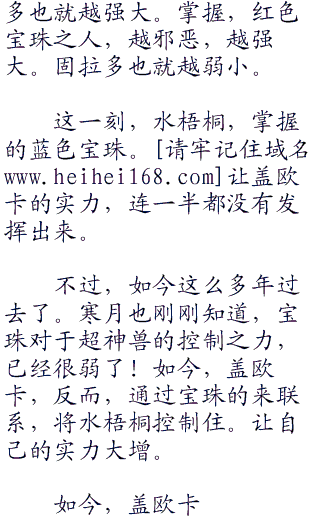 多也就越强大。掌握，红色
宝珠之人，越邪恶，越强
大。固拉多也就越弱小。
这一刻，水梧桐，掌握
的蓝色宝珠。[请牢记住域名
www.heihei168.com]让盖欧
卡的实力，连一半都没有发
挥出来。
不过，如今这么多年过
去了。寒月也刚刚知道，宝
珠对于超神兽的控制之力，
已经很弱了！如今，盖欧
卡，反而，通过宝珠的来联
系，将水梧桐控制住。让自
己的实力大增。
如今，盖欧卡